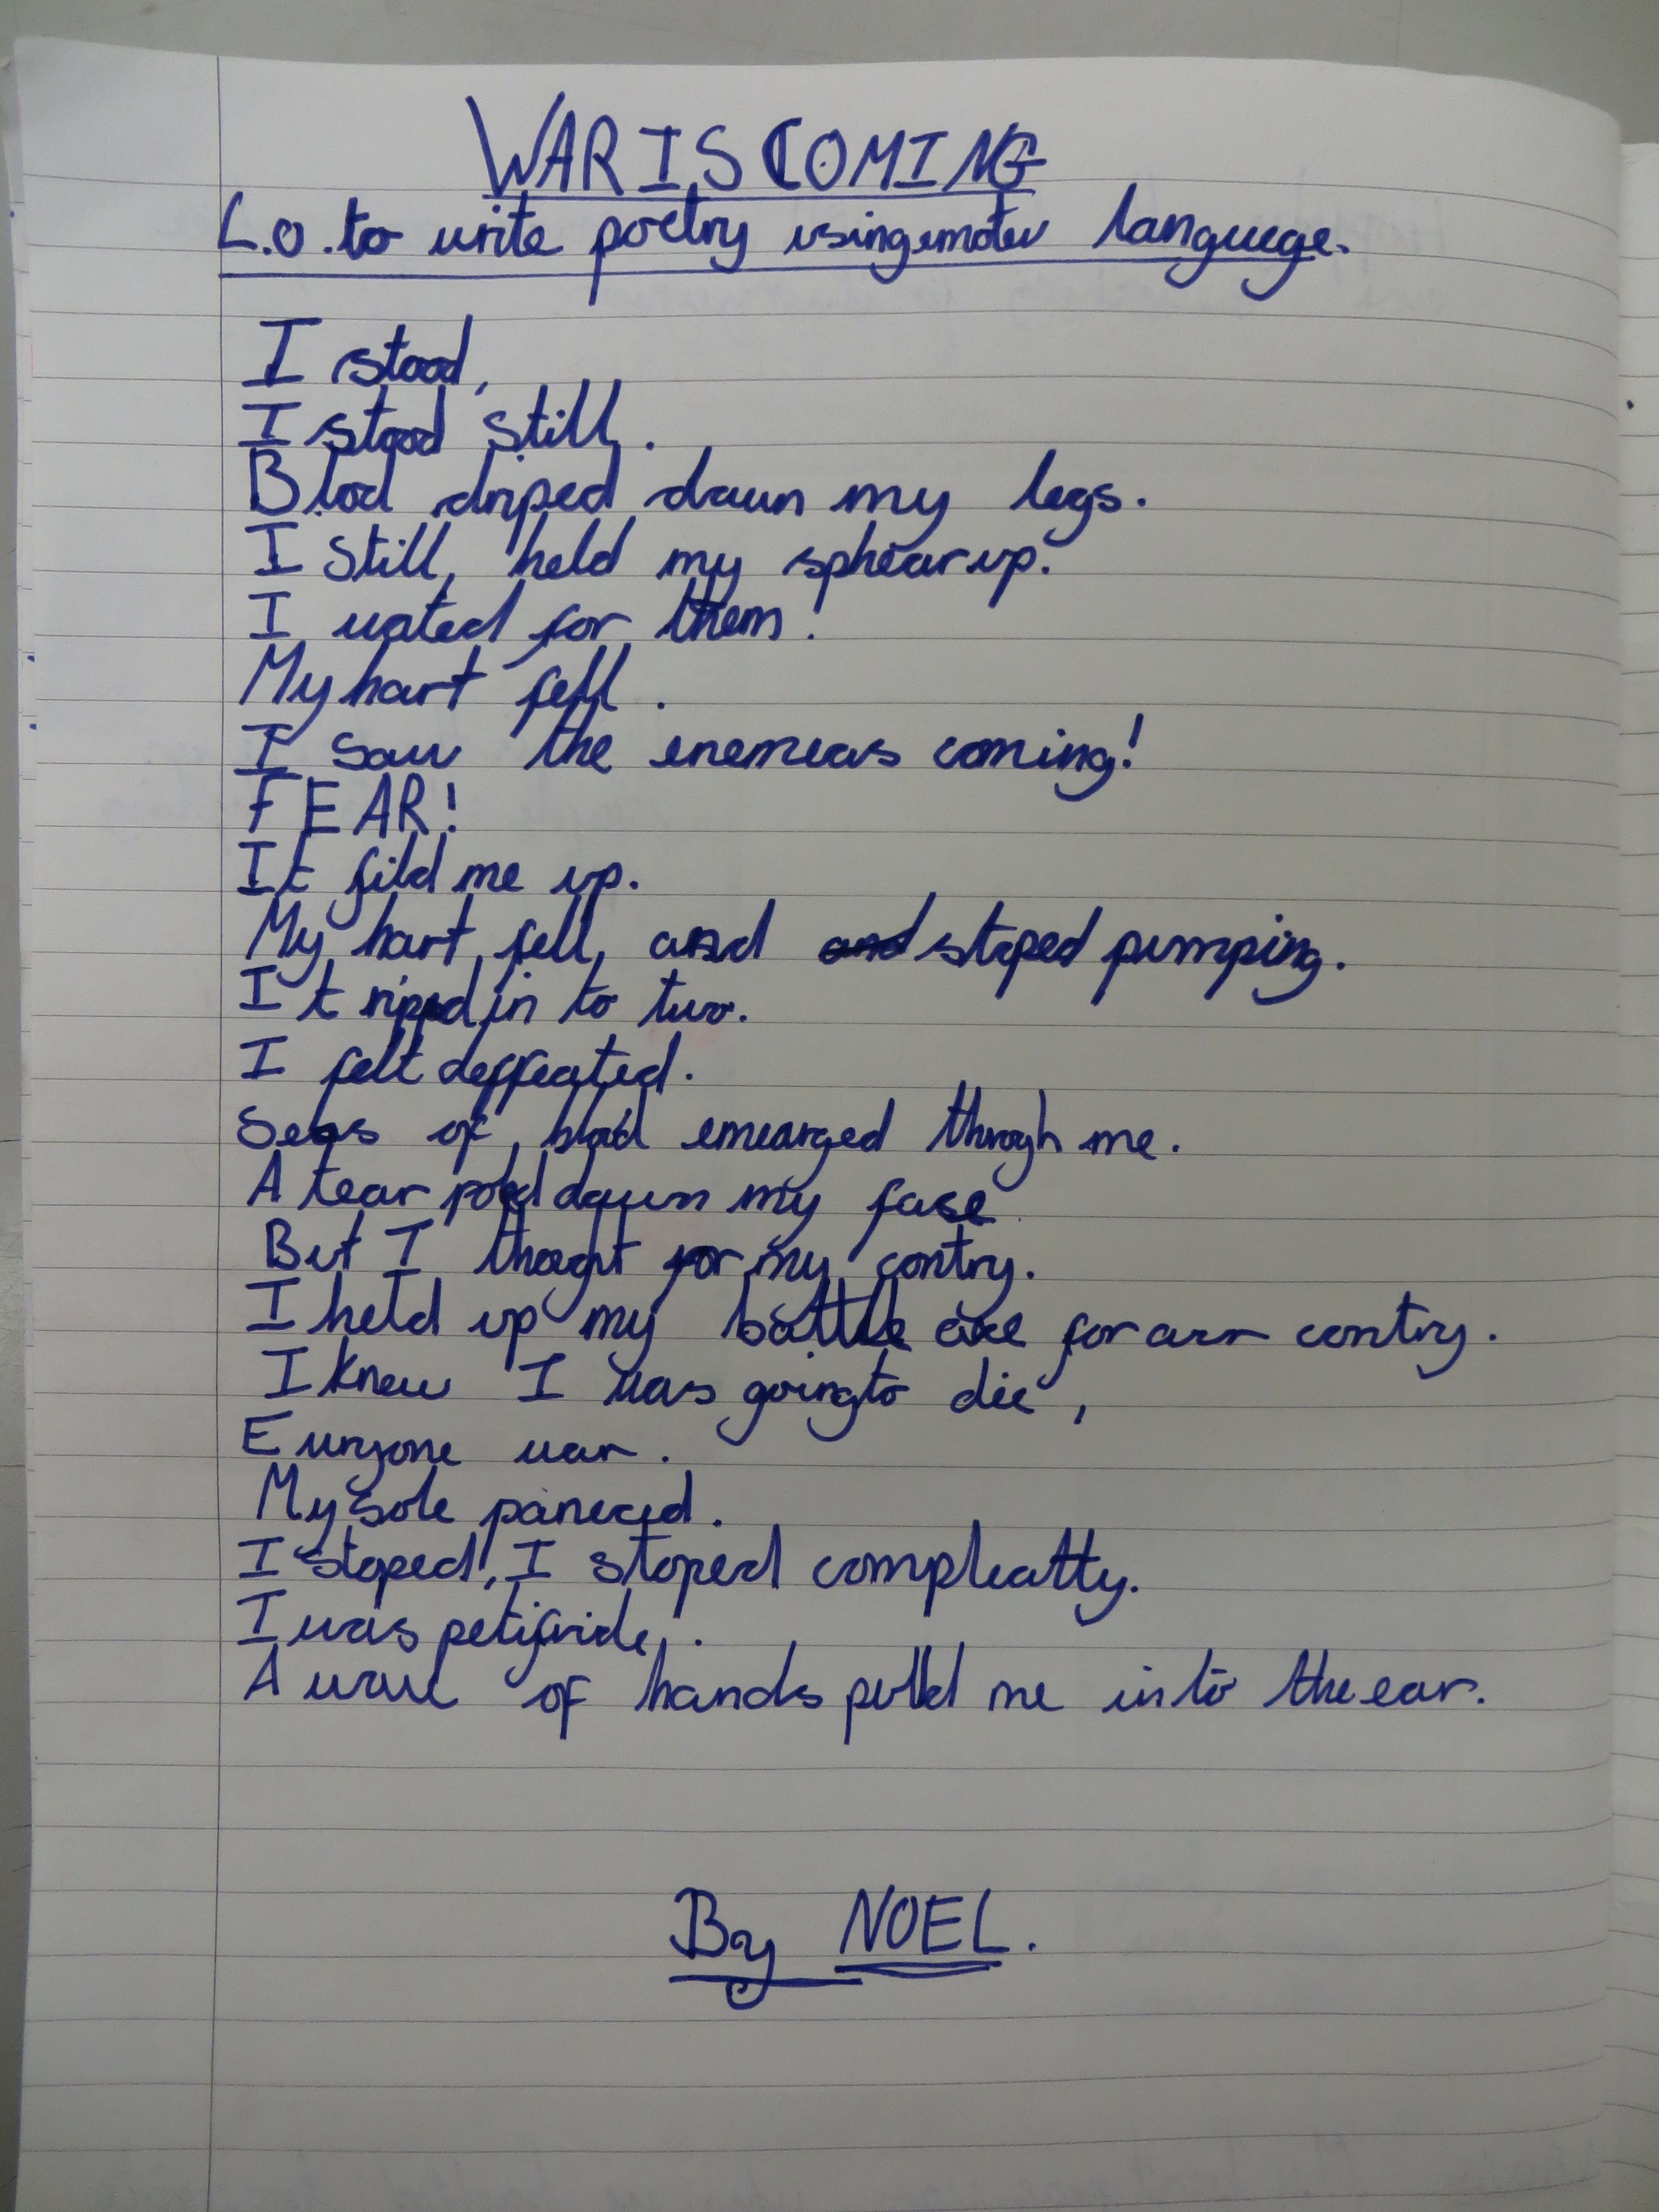 WAR IS COMING
L.O. to write poetry using emotev language.
I stood,
I stood still.
Blod driped dawn my legs.
I still, held my sphear up.
I wated for them!
My hart fell.
I saw the enemeas coming!
FEAR!
It fild me up.
My hart fell, and and stoped pumping.
It ripped in to two.
I felt deffeated.
Seas of blod emearged throgh me.
A tear dawn my fase
But I thoght for my contry.
I held up my battle axe for awr contry.
I knew I was going to die,
Evryone war.
My sole paneced.
I stoped, I stoped compleatly.
I was petifride.
A wave of hands pulld me into the ear.
By NOEL.